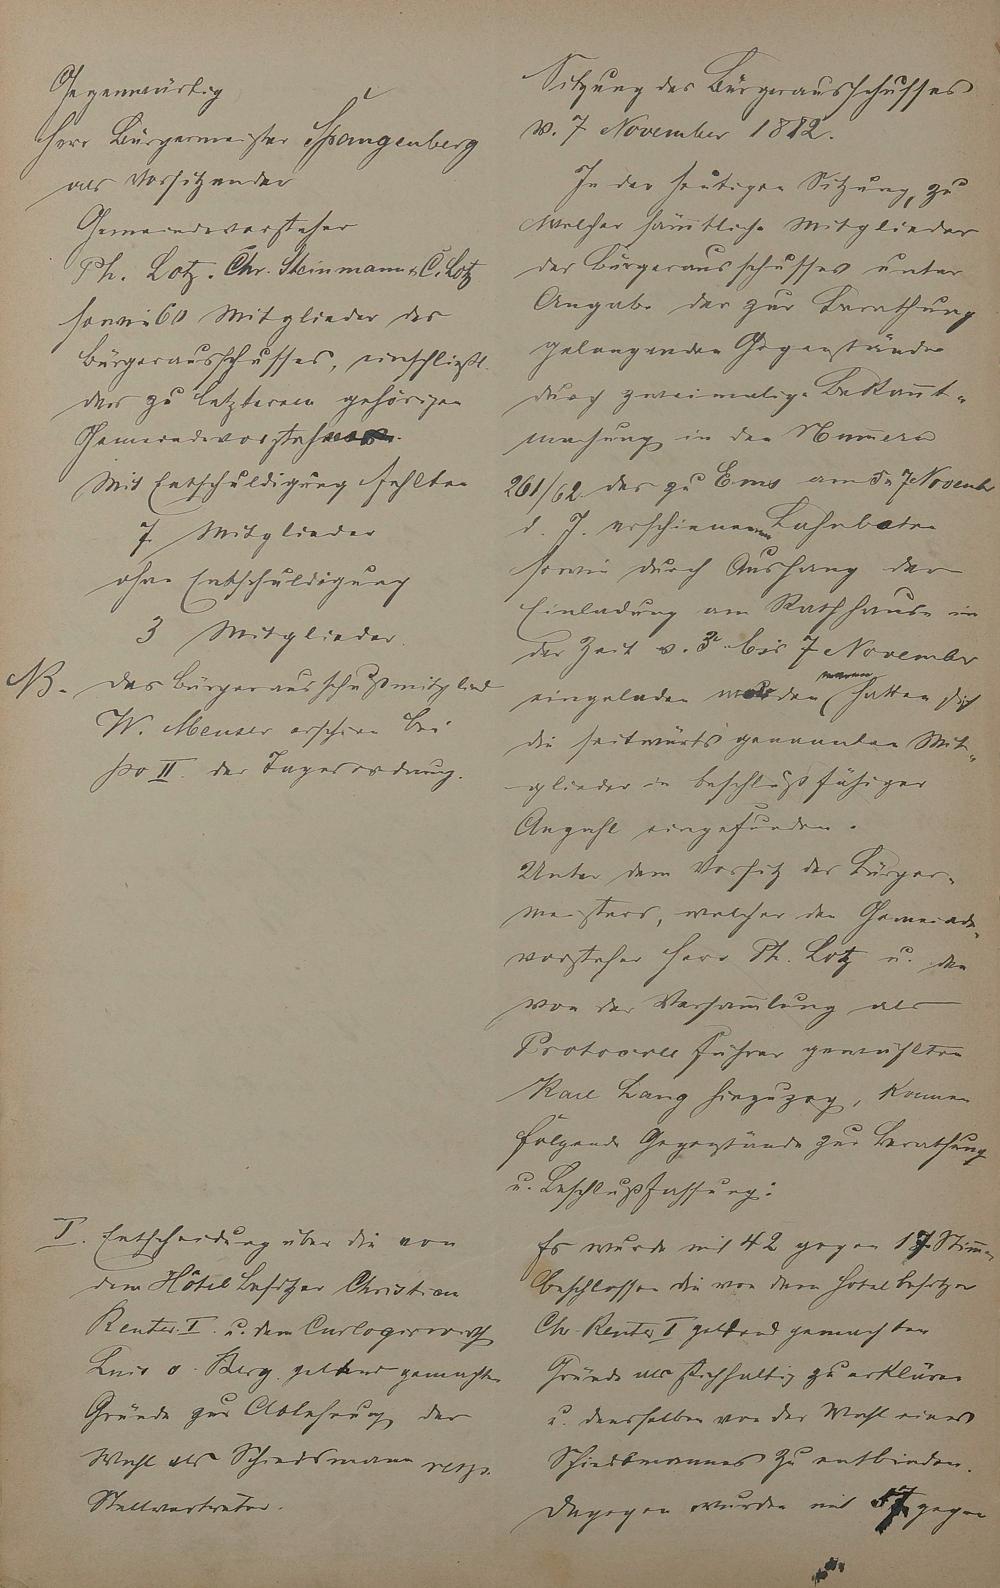 Gegenwärtig
Herr Bürgermeister Spangenberg
als Vorsitzender
Gemeindevorsteher
Ph. Lotz. Chr. Steinmann, C. Lotz
sowie 60 Mitglieder des
Bürgerausschusses, einschließl.
der zu letzterem gehörigen
Gemeindevorsteher.
Mit Entschuldigung fehlten
7 Mitglieder
ohne Entschuldigung
3 Mitglieder.
NB. Das Bürgerausschußmitglied
W. Menser erschien bei
II der Tagesordnung.
I. Entscheidung über die von
dem Hôtel Besitzer Christian
Reuter I. u. dem Curlogirwirth
Louis v. Berg geltend gemachten
Gründe zur Ablehnung der
Wahl als Schiedsmann resp.
Stellvertreter.
Sitzung des Bürgerausschusses
v. 7 November 1882.
In der heutigen Sitzung, zu
welcher sämmtliche Mitglieder
des Bürgerausschusses unter
Angabe der zur Berathung
gelangenden Gegenstände
durch zweimalige Bekannt-
machung in den Nummern
261/62 des zu Ems am 5 u 7 November
d. J. erschienenen Lahnboten
sowie durch Aushang der
Einladung am Rathhause in
der Zeit v. 3. bis 7 November
eingeladen worden waren, hatten sich
die seitwärts genannten Mit-
glieder in beschlußfähiger
Anzahl eingefunden.
Unter dem Vorsitz des Bürger-
meisters, welcher den Gemeinde-
vorsteher Herr Ph. Lotz u. den
von der Versammlung als
Protocollführer gewählten
Karl Lang hinzuzog, kamen
folgende Gegenstände zur Berathung
u. Beschlußfassung:
Es wurde mit 42 gegen 17 Stimmen
beschlossen die von dem Hotelbesitzer
Chr. Reuter I geltend gemachten
Gründe als stichhaltig zu erklären
u. denselben von der Wahl eines
Schiedsmannes zu entbinden.
Dagegen wurden mit 57 gegen